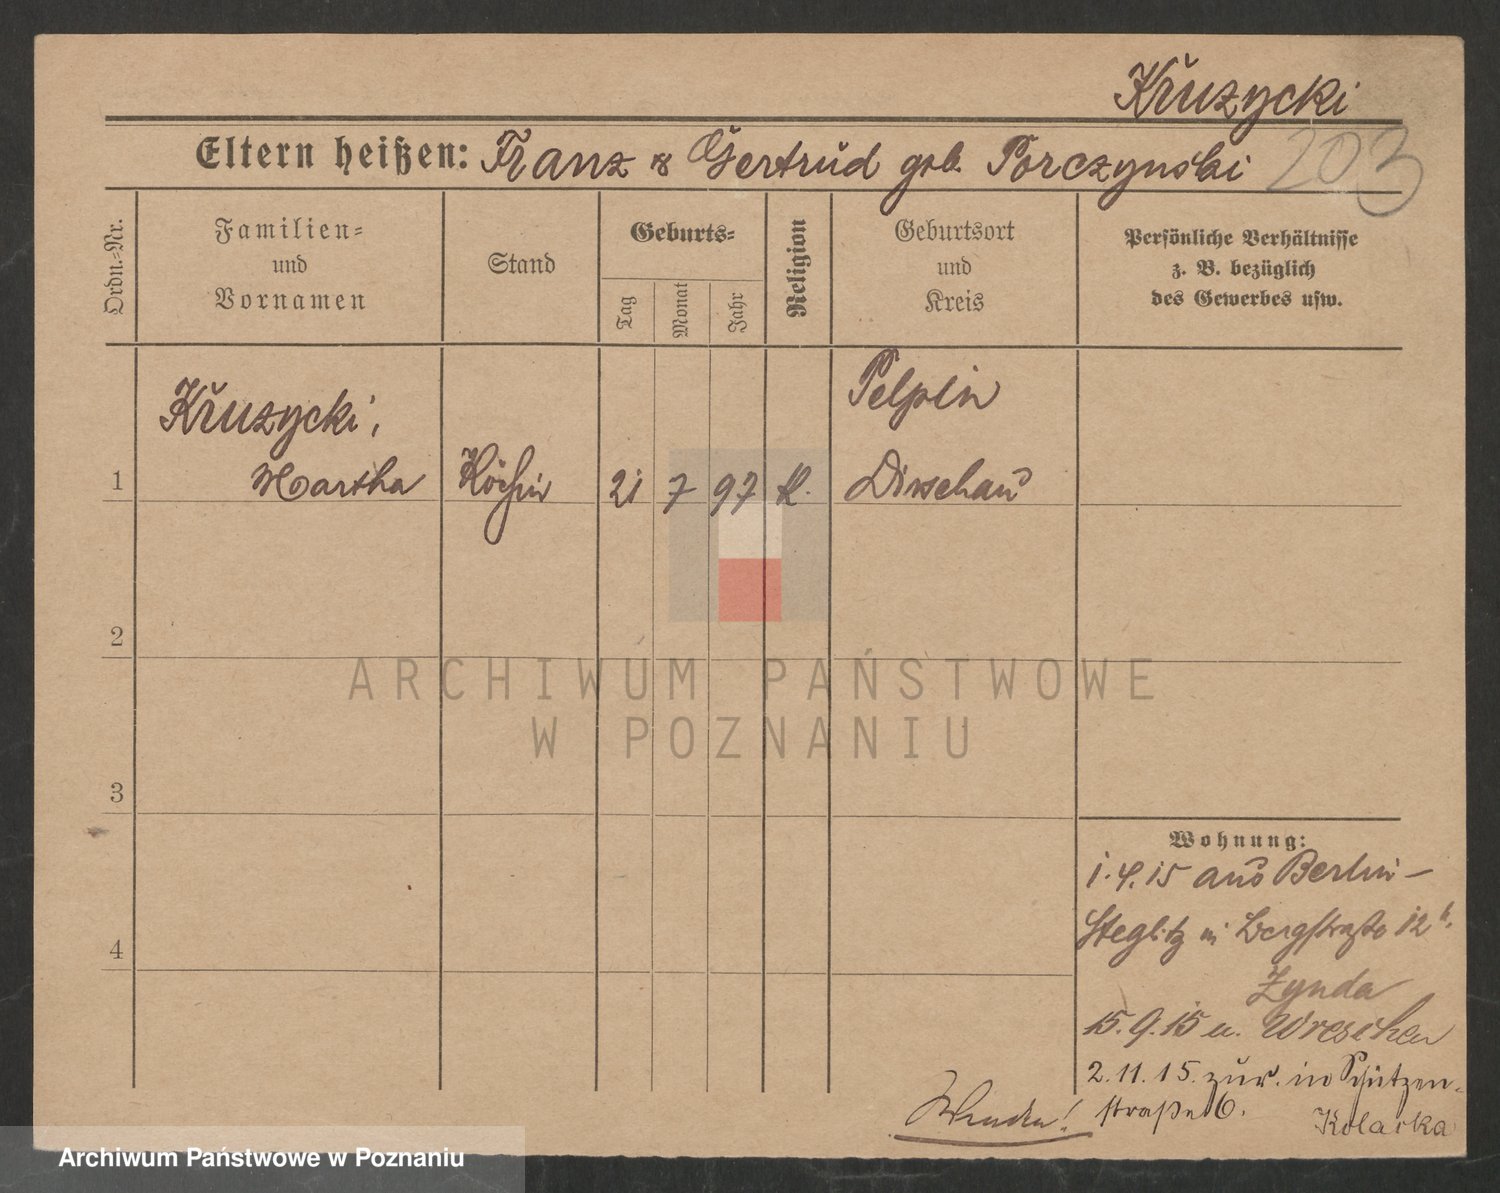 Kruzycki
Eltern heißen: Franz & Gertrud geb. Porczynski
203
Ordn.-Nr.
Familien-
und
Vornamen
Stand
Geburts-
Tag
Monat
Jahr
Religion
Geburtsort
und
Kreis
Persönliche Verhältnisse
z. B. bezüglich
des Gewerbes usw.
Kruzycki,
Martha
Köchin
21 7 97 K.
Pelplin
Dirschau
1
2
3
4
Wohnung:
1.4.15 aus Berlin-
Steglitz in Bergstraße 12b.
Zynda
15.9.15 n. Wreschen
2.11.15. zur. in Schützen-
straße 6. Kolaska
Wenden!
ARCHIWUM PAŃSTWOWE
W POZNANIU
Archiwum Państwowe w Poznaniu